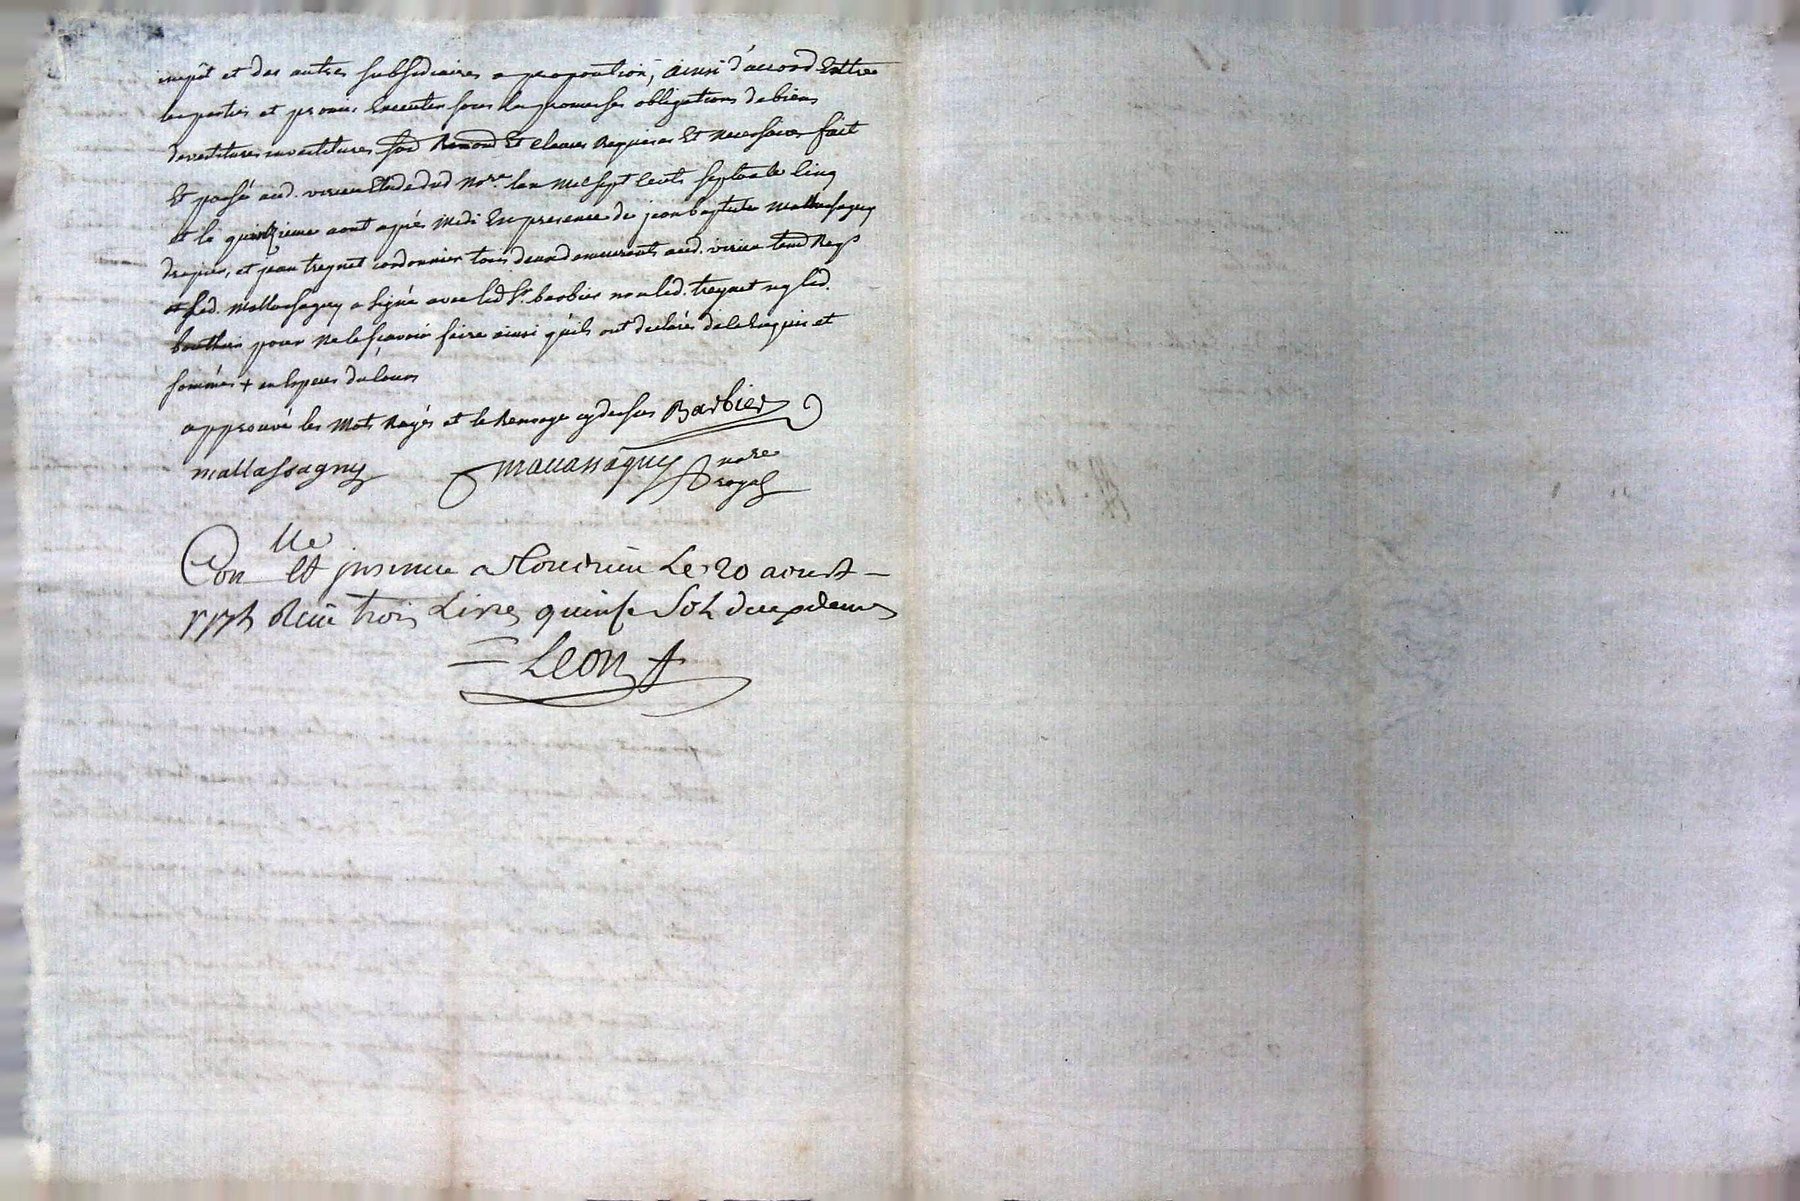 impôt et des autres subsidiaires a proportion, ainsi d'accord Entre
les parties et promis Executer sous les promesses obligations de biens
devestitures investitures Et clauses Requises Et Necessaires fait
Et passé aud. virieu Etude dud Nore. lan Mil sept Cents septante Cinq
et le quinzieme aout après Midi En presence de jean baptiste Mallassagny
drapier, et jean treynet cordonnier tous deux demeurants aud. virieu
Mallassagny a signé avec led Sr. barbier non led. treynet ny led.
pour Ne le sçavoir faire ainsi qu'ils ont declarés de ce Enquis et
sommés +
approuvé les Mots Rayés et le Renvoye cy dessus Barbier
mallassagny Mallassagny nore
royal
Conlle et jnsinue a Le 20 aoust
1775 Recu trois Livre quinse Sols deux deniers
Leon